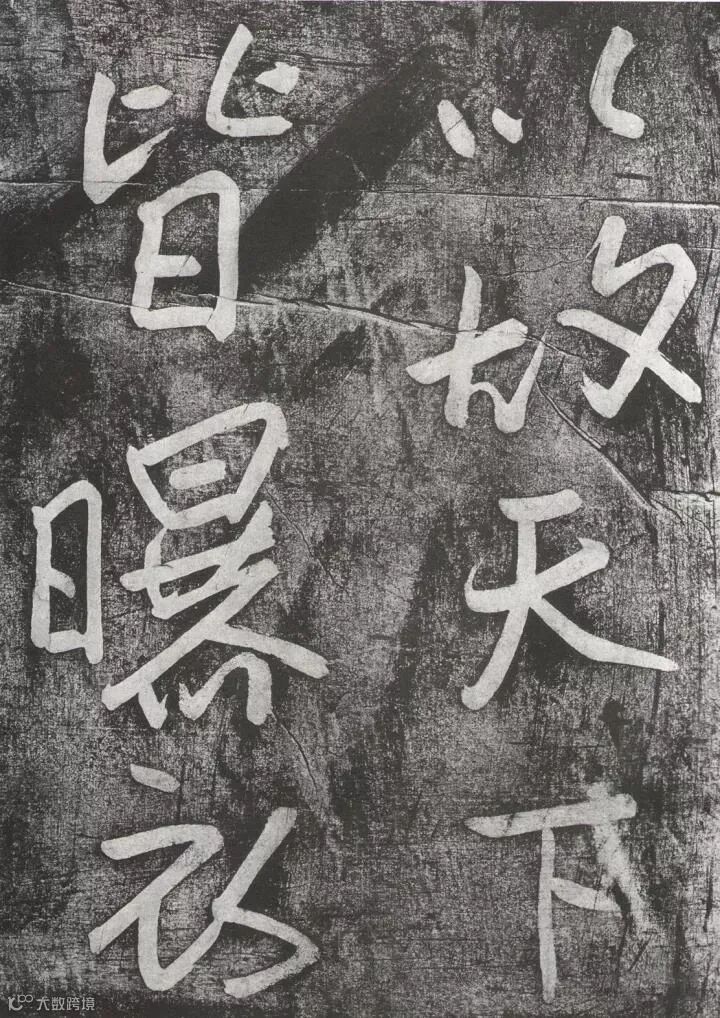 以故天下
皆曝衣
大数跨境